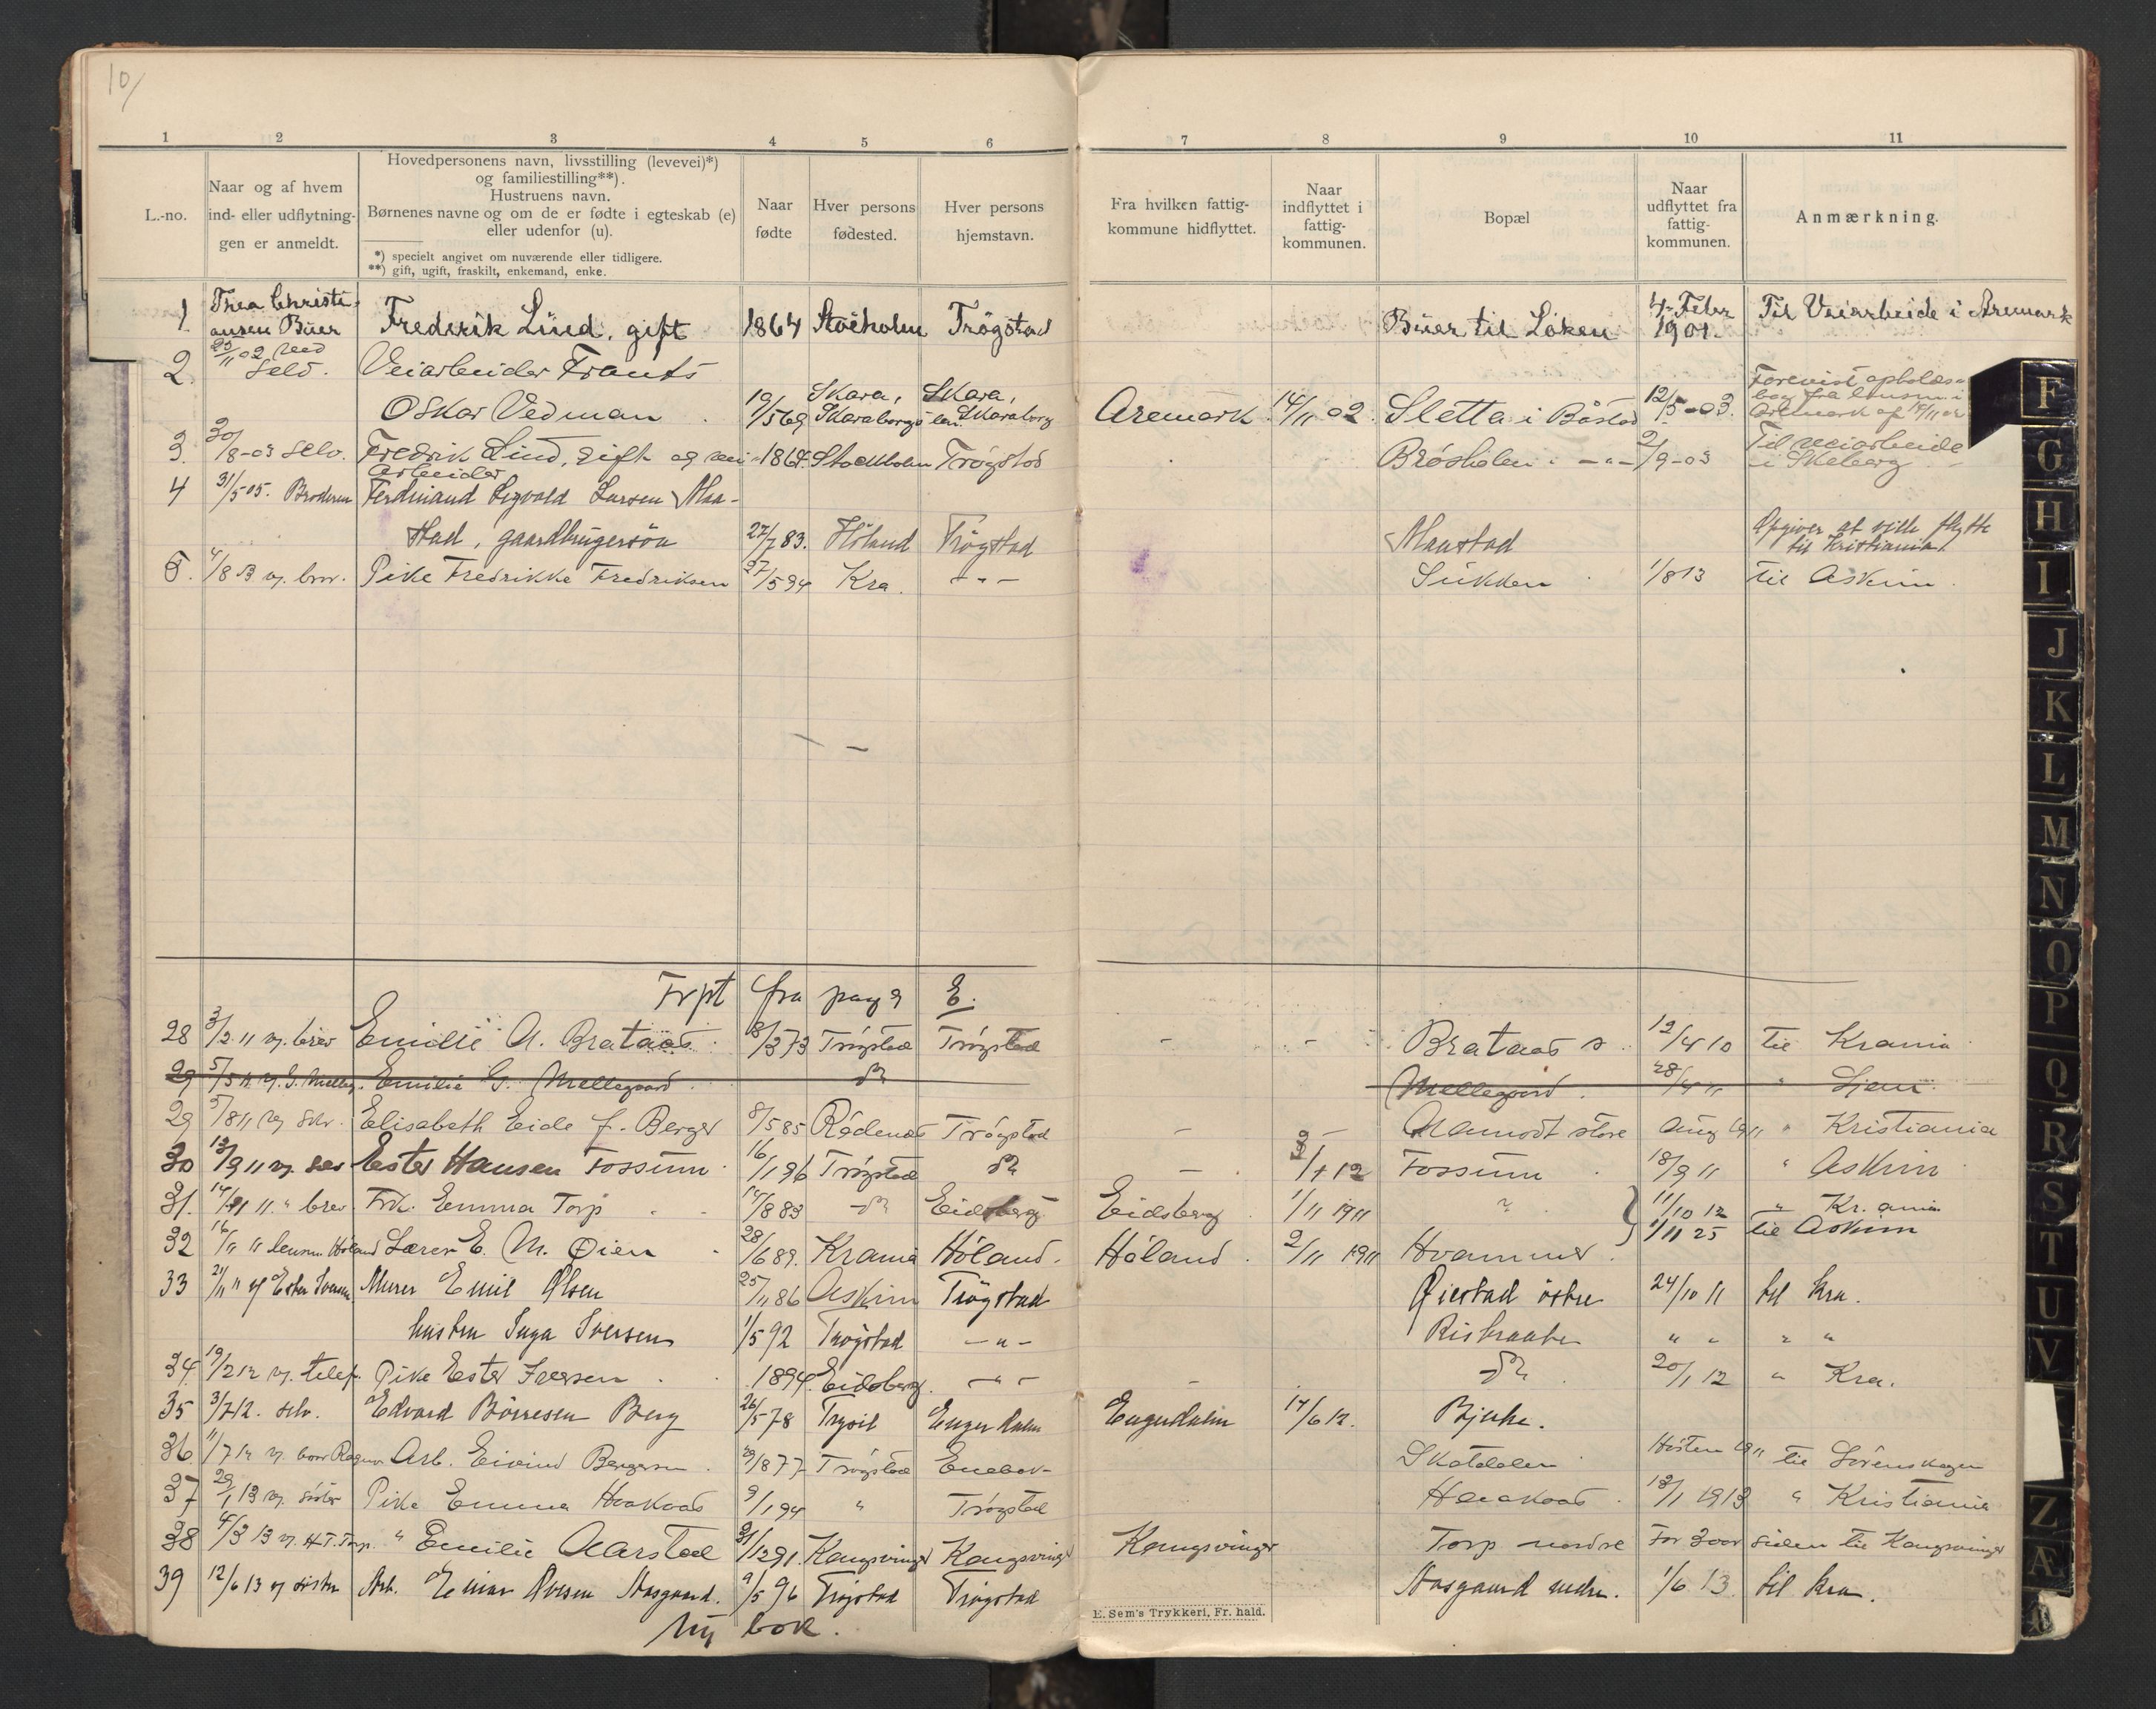 10/
1 2 3 4 5 6 7 8 9 10 11
L.-no.
Naar og af hvem
ind- eller udflytnin-
gen er anmeldt.
Hovedpersonens navn, livsstilling (levevei)*)
og familiestilling**).
Hustruens navn.
Børnenes navne og om de er fødte i egteskab (e)
eller udenfor (u).
*) specielt angivet om nuværende eller tidligere.
**) gift, ugift, fraskilt, enkemand, enke.
Naar
fødte
Hver persons
fødested.
Hver persons
hjemstavn.
Fra hvilken fattig-
kommune hidflyttet.
Naar
indflyttet i
fattig-
kommunen.
Bopæl
Naar
udflyttet fra
fattig-
kommunen.
Anmærkning.
1. Thea Christi- 4-Febr
ansen Büer Frederik Lind, gift 1864 Stocholm Trögstad Büer til Löken 1901. Til Veiarbeide i Aremark
2. 25/11 02 ved Selv. Veiarbeider Frants
Oskar Vedman 19/5 69 Skara, Skaraborgs len Skara, Skaraborg Aremark 14/11 02. Sletta i Båstad 12/5-03. Forevist opholds-
bog fra lensm. i
Aremark af 14/11 02
3. 30/8-03 Selv. Fredrik Lind, gift og vei- 1864. Stockholm Trögstad Brøsholen -"- 2/9-03 Til veiarbeide
arbeider i Skeberg
4 31/5 05. Broderen Ferdinand Sigvald Larsen Maa-
stad, gaardbrugersön 27/7 83. Höland Trögstad Maastad Opgiver at ville flytte
til Kristiania.
5. 4/8 13 vg. brev. Pike Fredrikke Fredriksen 27/5 94 Kra. -"- Sükken 1/8 13 til Askim.
Trpt fra pag 9 E.
28 3/2 11 vg. brev Emilie A. Brataas 8/3 73 Trögstad Trögstad - - Brataas s. 12/4 10 til Krania
29 5/5 11 vg. G. Melleg. Emilie G. Mellegaard do Mellegaard. 28/4 11 "
29 5/8 11 vg selv. Elisabeth Eide f. Berger 8/5 85 Rödenes Trögstad - - Aamodt store Aug 1911 " Kristiania
30 13/9 11 vg. selv Ester Hansen Fossum 16/1 96 Trögstad do - Fossum 18/9 11 " Askim
31. 14/11 11. " brev. Frk. Emma Torp 14/8 83 do Eidsberg Eidsberg 1/11 1911 " 11/10 12 " Kr.ania
32 16/11 11 lensm. Höland Lærer E. M. Øien 28/6 89. Krania Höland. Höland. 2/11 1911 Hvammer. 1/11 25 til Askim
33 21/11 11 af Ester Iversen Murer Emil Olsen 25/11 86 Askim Trögstad Øiestad östre 24/10 11 til Kra.
hustru Inga Iversen 1/5 92 Trögstad -"- Risbraaten " " " "
34. 19/2 12 vg. telef. Pike Ester Iversen 1894. Eidsberg. -"- - do 20/1 12 " Kra.
35 3/7 12. selv. Edvard Börresen Berg 26/5 78 Trysil Enger Dalen Engerdalen 14/6 12. Bjerke.
36 11/7 12 vg. bror Ragnv. Arb. Eivind Bergersen 29/8 77 Trögstad Enebak- Skatdalen Hösten 1911 til Lörenskogen
37 29/1 13 vg. söster Pike Emma Haakaas 9/1 94 " Trögstad Haakaas. 13/1 1913 " Kristiania
38 4/3 13 vg. H.T. Torp. " Emilie Aarstad 31/12 91. Kongsvinger Kongsvinger Kongsvinger Torp nordre For 3 aar siden til Kongsvinger
39 12/6 13 vg söster Arb. Einar Iversen Aasgaard. 9/5 96 Trögstad Trögstad Aasgaard nedre. 1/6 13. til Kra.
Ny bok.
E. Sem's Trykkeri, Fr. hald.
F
G
H
I
J
K
L
M
N
O
P
Q
R
S
T
U
V
Z
Æ